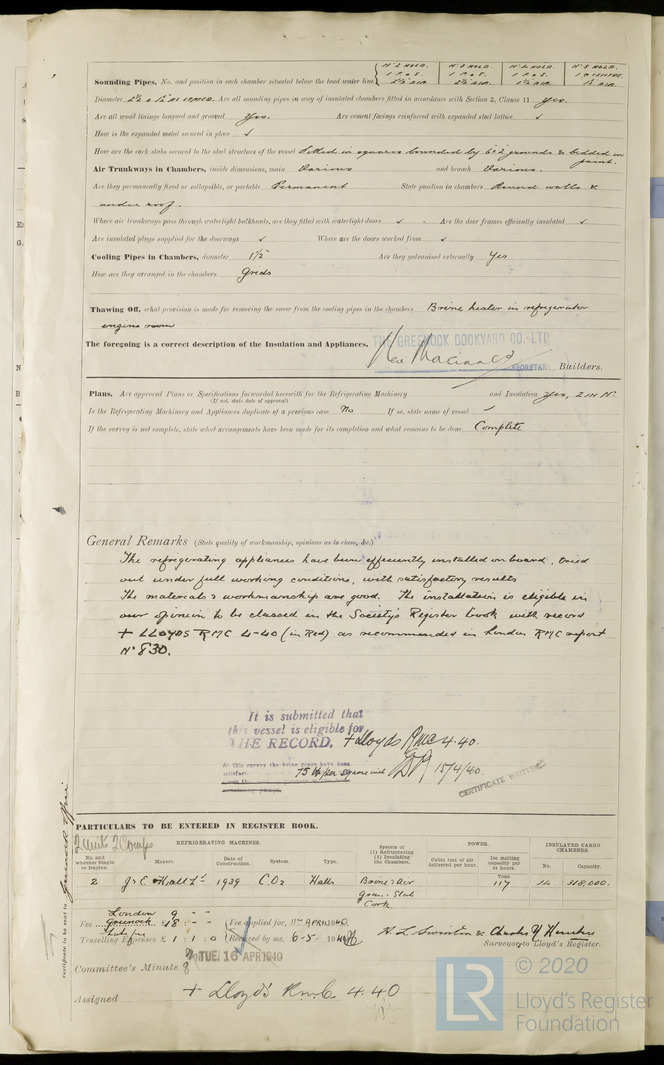 Nº 2 HOLD. Nº 3 HOLD. Nº 4 HOLD. Nº 5 HOLD.
Sounding Pipes, No. and position in each chamber situated below the load water line 1 P & S. 1 P & S. 1 P & S. 1 CENTRE.
Diameter Are all sounding pipes in way of insulated chambers fitted in accordance with Section 2, Clause 11 yes.
Are all wood linings tongued and grooved yes. Are cement facings reinforced with expanded steel lattice ✓
How is the expanded metal secured in place ✓
How are the cork slabs secured to the steel structure of the vessel fitted in squares bounded by 6"x2" grounds & bedded in paint.
Air Trunkways in Chambers, inside dimensions, main Various and branch Various.
Are they permanently fixed or collapsible, or portable Permanent State position in chambers Round walls &
under roof.
Where air trunkways pass through watertight bulkheads, are they fitted with watertight doors ✓ Are the door frames efficiently insulated ✓
Are insulated plugs supplied for the doorways ✓ Where are the doors worked from ✓
Cooling Pipes in Chambers, diameter 1½" Are they galvanised externally Yes
How are they arranged in the chambers Grids
Thawing Off, what provision is made for removing the snow from the cooling pipes in the chambers Brine heater in refrigerator
engine room
THE GREENOCK DOCKYARD CO., LTD
The foregoing is a correct description of the Insulation and Appliances.
SECRETARY Builders.
Plans. Are approved Plans or Specifications forwarded herewith for the Refrigerating Machinery and Insulation Yes, 2 in Nº
(If not, state date of approval)
Is the Refrigerating Machinery and Appliances duplicate of a previous case No If so, state name of vessel ✓
If the survey is not complete, state what arrangements have been made for its completion and what remains to be done Complete
General Remarks (State quality of workmanship, opinions as to class, &c.)
The refrigerating appliances have been efficiently installed on board, tried
out under full working conditions, with satisfactory results
The materials & workmanship are good. The installation is eligible in
our opinion to be classed in the Society's Register Book with record
+ LLOYDS RMC 4-40 (in Red) as recommended in London RMC report
Nº 830.
It is submitted that
this vessel is eligible for
THE RECORD. + Lloyds RMC 4.40.
At this survey the brine pipes have been
75 lb per square inch 15/4/40.
CERTIFICATE WRITTEN
Certificate to be sent to Greenock Office
PARTICULARS TO BE ENTERED IN REGISTER BOOK.
2 Units 2 Comps
REFRIGERATING MACHINES. POWER. INSULATED CARGO CHAMBERS.
No. and whether Single or Duplex. Makers. Date of Construction. System. Type. System of (1) Refrigerating (2) Insulating the Chambers. Cubic feet of air delivered per hour. Ice melting capacity per 24 hours. No. Capacity.
Tons
2 J & E Hall Ld 1939 CO2 Halls Brine & Air 117 14 318,000.
Cork
London 9 - -
Fee Greenock £ 18 : - : - Fee applied for, 11th APRIL 1940.
Travelling Expenses £ 1 : 1 : 0 Received by me, 6-5-1940 H. L. Swinton & Charles
Surveyor to Lloyd's Register.
Committee's Minute TUE. 16 APR 1940
Assigned + Lloyd's R.M.C. 4.40
© 2020
LR Lloyd's Register
Foundation